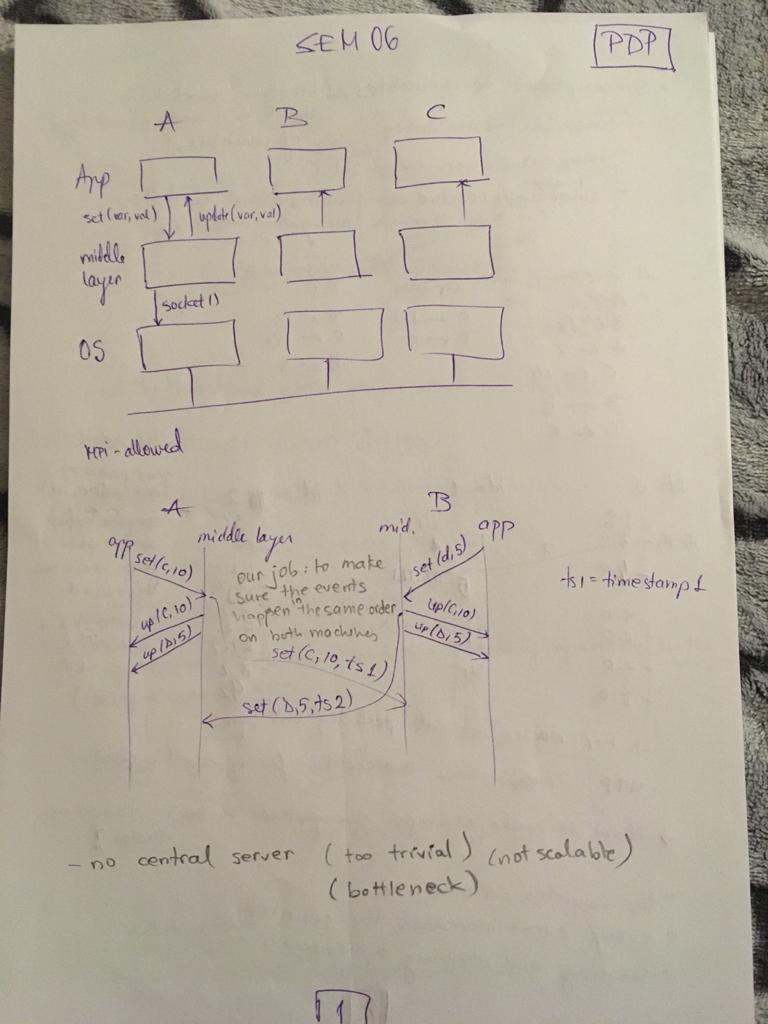 SEM 06
PDP
A B C
App
set(var,val) update(var,val)
middle
layer
socket()
OS
MPI - allowed
A B
app middle layer mid. app
set(C,10) set(d,5)
our job: to make
sure the events
happen in the same order
on both machines
ts1 = timestamp1
up(C,10) up(C,10)
up(D,5) up(D,5)
set(C,10,ts1)
set(D,5,ts2)
- no central server (too trivial) (not scalable)
(bottleneck)
1